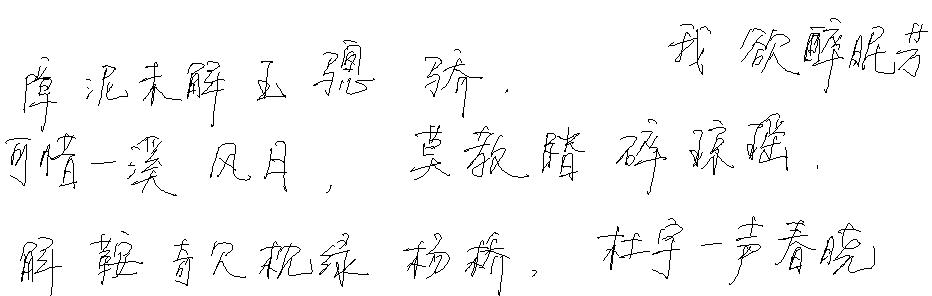 障泥未解玉骢骄.我欲醉眠芳
可惜一溪风月,莫教踏碎琼瑶.
解鞍奇欠枕绿杨桥,杜宇一声春晓